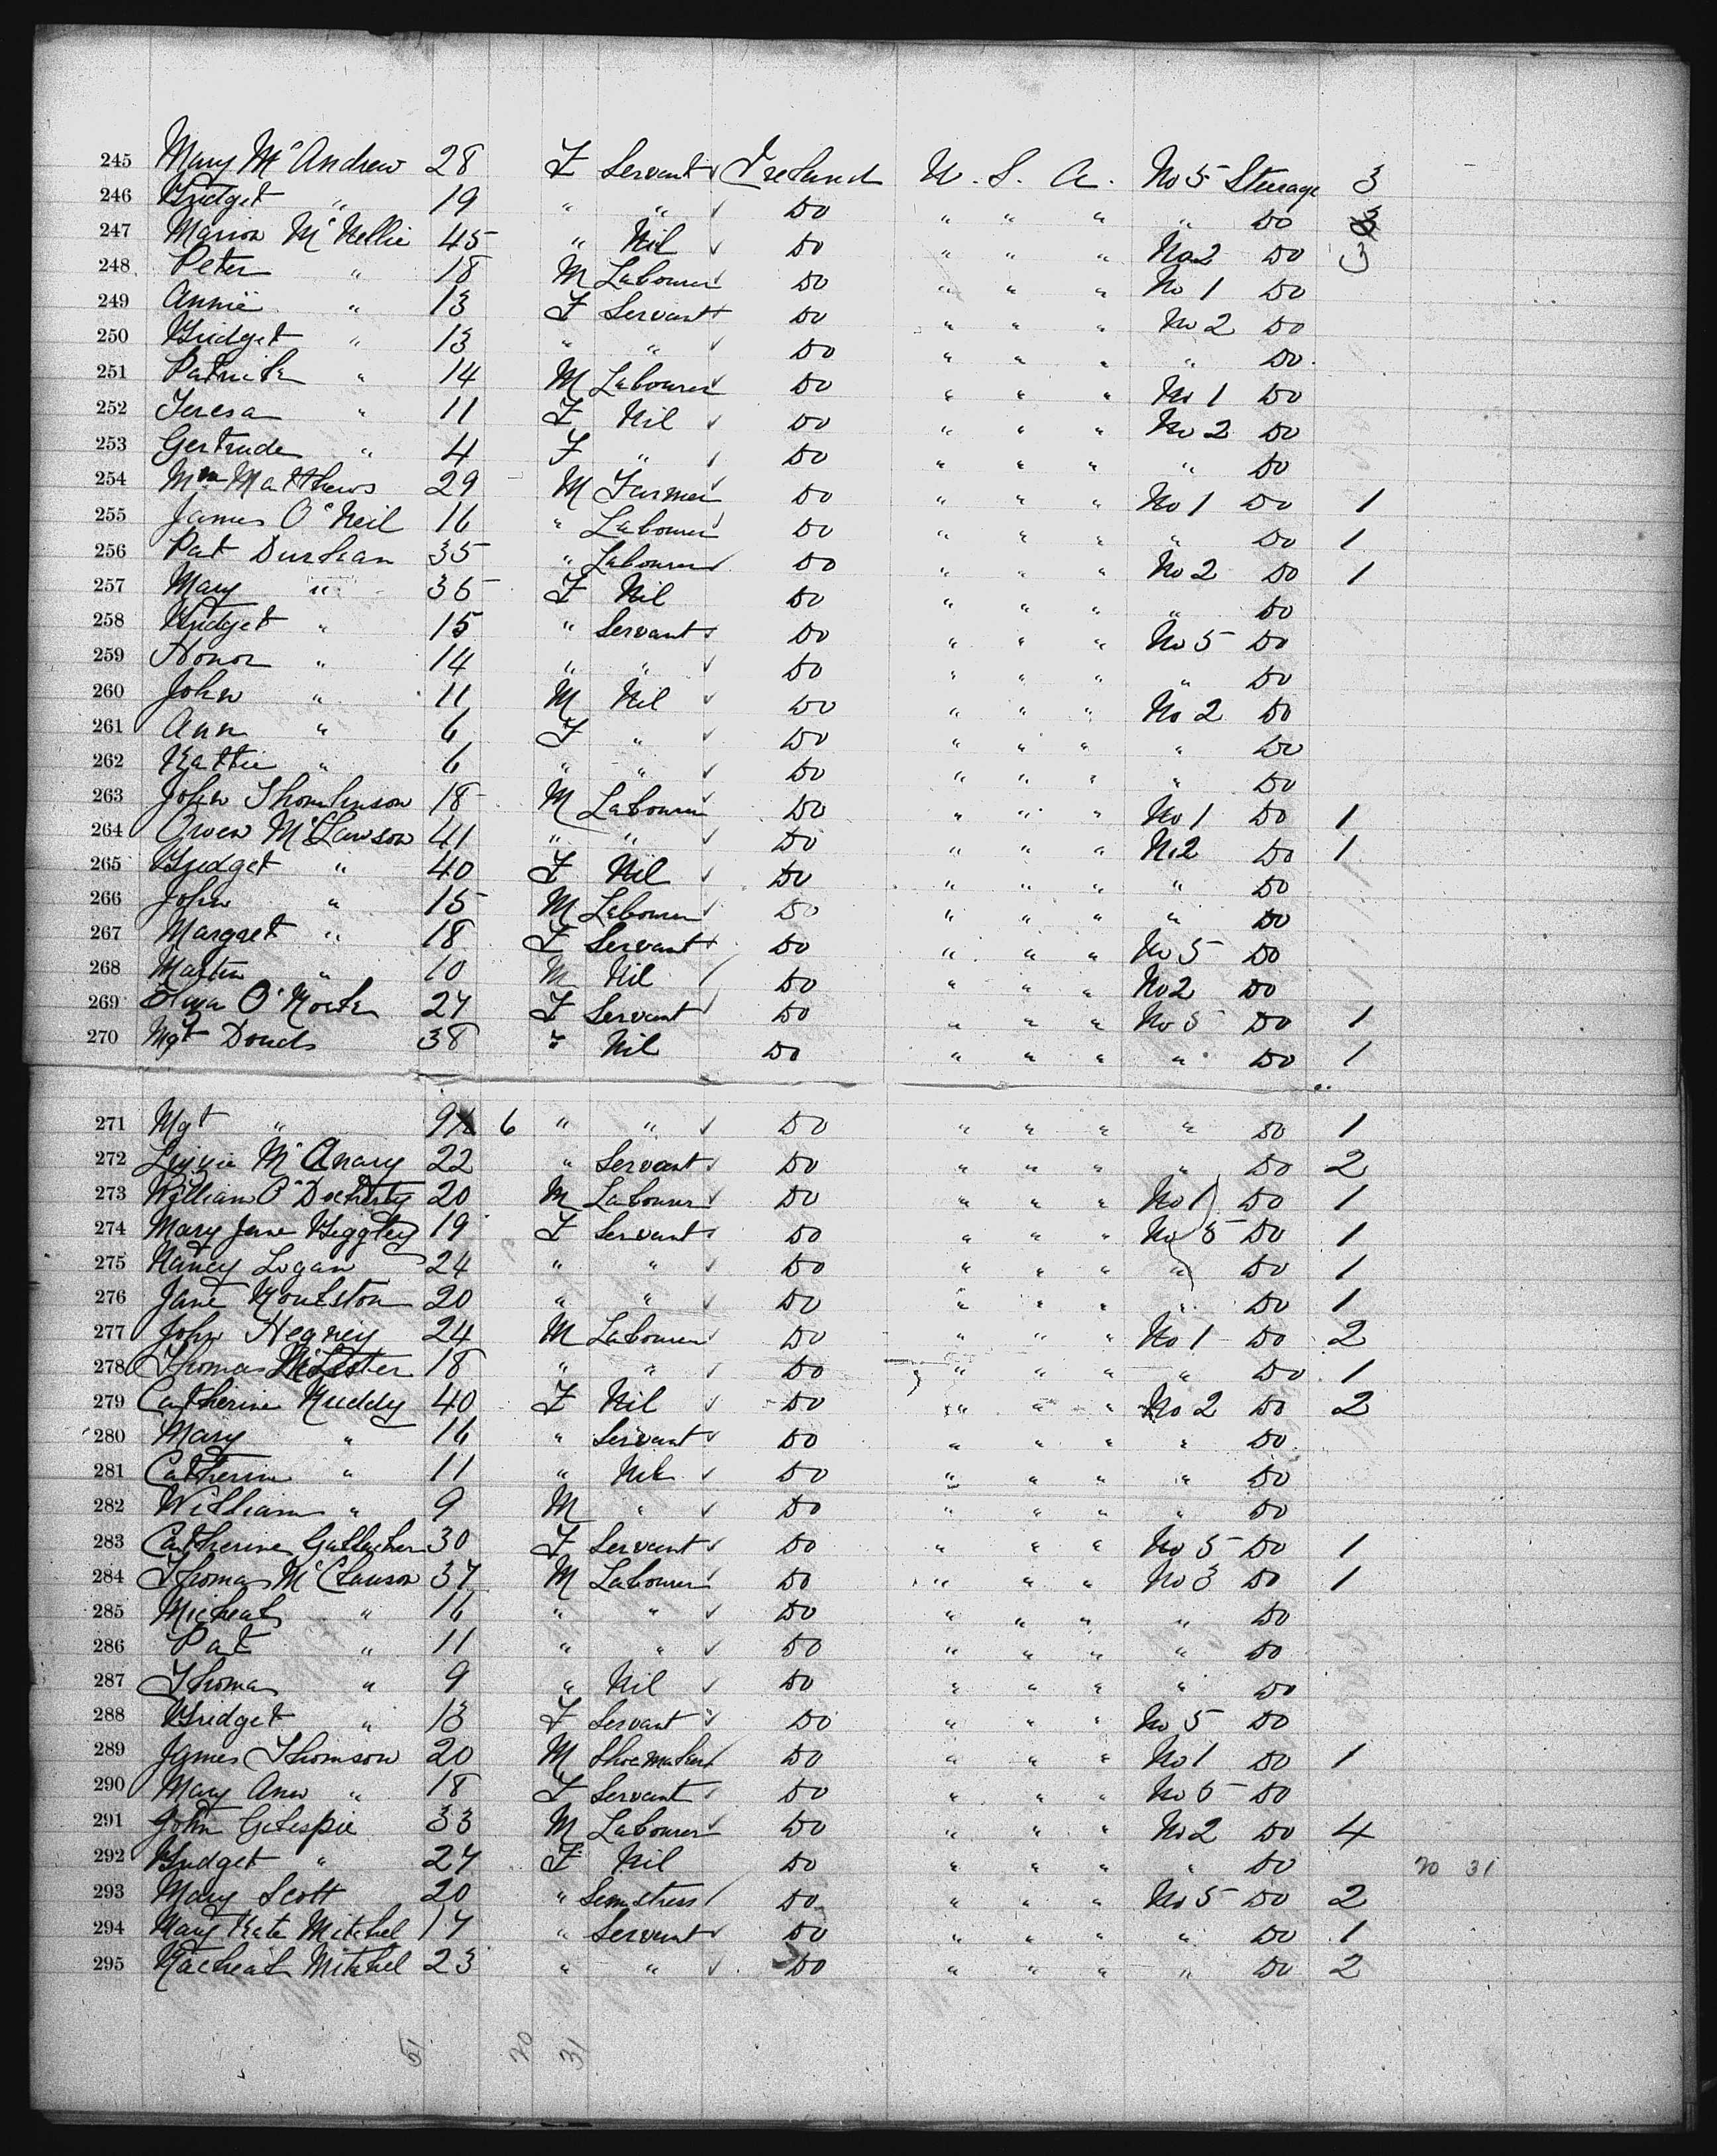 245 Mary McAndrew 28 F Servant Ireland U. S. A. No 5 Steerage 3
246 Bridget " 19 " " Do " " " " Do 3
247 Marion McNellie 45 " Nil Do " " " No 2 Do 3
248 Peter " 18 M Labourer Do " " " No 1 Do
249 Annie " 13 F Servant Do " " " No 2 Do
250 Bridget " 13 " " Do " " " " Do
251 Patrick " 14 M Labourer Do " " " No 1 Do
252 Teresa " 11 F Nil Do " " " No 2 Do
253 Gertrude " 4 F " Do " " " " Do
254 Wm Matthews 29 M Farmer Do " " " No 1 Do 1
255 James O'Neil 16 " Labourer Do " " " " Do 1
256 Pat Durkan 35 " Labourer Do " " " No 2 Do 1
257 Mary " 35 F Nil Do " " " " Do
258 Bridget " 15 " Servant Do " " " No 5 Do
259 Honor " 14 " " Do " " " " Do
260 John " 11 M Nil Do " " " No 2 Do
261 Ann " 6 F " Do " " " " Do
262 Kattie " 6 " " Do " " " " Do
263 John Thomlinson 18 M Labourer Do " " " No 1 Do 1
264 Owen McLawson 41 " " Do " " " No 2 Do 1
265 Bridget " 40 F Nil Do " " " " Do
266 John " 15 M Labourer Do " " " " Do
267 Margret " 18 F Servant Do " " " No 5 Do
268 Martin " 10 M Nil Do " " " No 2 Do
269 O' 27 F Servant Do " " " No 5 Do 1
270 Mgt Douds 38 " Nil Do " " " " Do 1
271 Mgt " 9 6 " " Do " " " " Do 1
272 Lizzie McAnary 22 " Servant Do " " " " Do 2
273 William O'Docherty 20 M Labourer Do " " " No 1 Do 1
274 Mary Jane 19 F Servant Do " " " No 5 Do 1
275 Nancy Logan 24 " " Do " " " " Do 1
276 Jane 20 " " Do " " " " Do 1
277 John Hegney 24 M Labourer Do " " " No 1 Do 2
278 Thomas 18 " " Do " " " " Do 1
279 Catherine Ruddy 40 F Nil Do " " " No 2 Do 2
280 Mary " 16 " Servant Do " " " " Do
281 Catherine " 11 " Nil Do " " " " Do
282 William " 9 M " Do " " " " Do
283 Catherine Gallacher 30 F Servant Do " " " No 5 Do 1
284 Thomas McClauson 37 M Labourer Do " " " No 3 Do 1
285 Micheal " 16 " " Do " " " " Do
286 Pat " 11 " " Do " " " " Do
287 Thomas " 9 " Nil Do " " " " Do
288 Bridget " 13 F Servant Do " " " No 5 Do
289 James Thomson 20 M Shoemaker Do " " " No 1 Do 1
290 Mary Ann " 18 F Servant Do " " " No 5 Do
291 John Gilespie 33 M Labourer Do " " " No 2 Do 4
292 Bridget " 27 F Nil Do " " " " Do 20 31
293 Mary Scott 20 " Semstress Do " " " No 5 Do 2
294 Mary Kate Mitchel 17 " Servant Do " " " " Do 1
295 Racheal Mitchel 23 " " Do " " " " Do 2
51 20 31